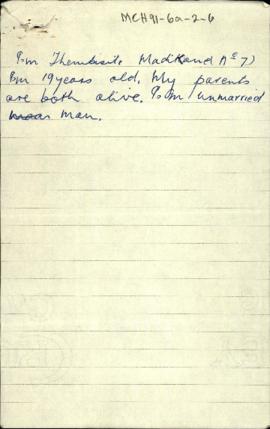 MCH91-6a-2-6
I'm Thembisile Madikand Nº 7)
I'm 19 years old. My parents
are both alive. I'm unmarried
man.